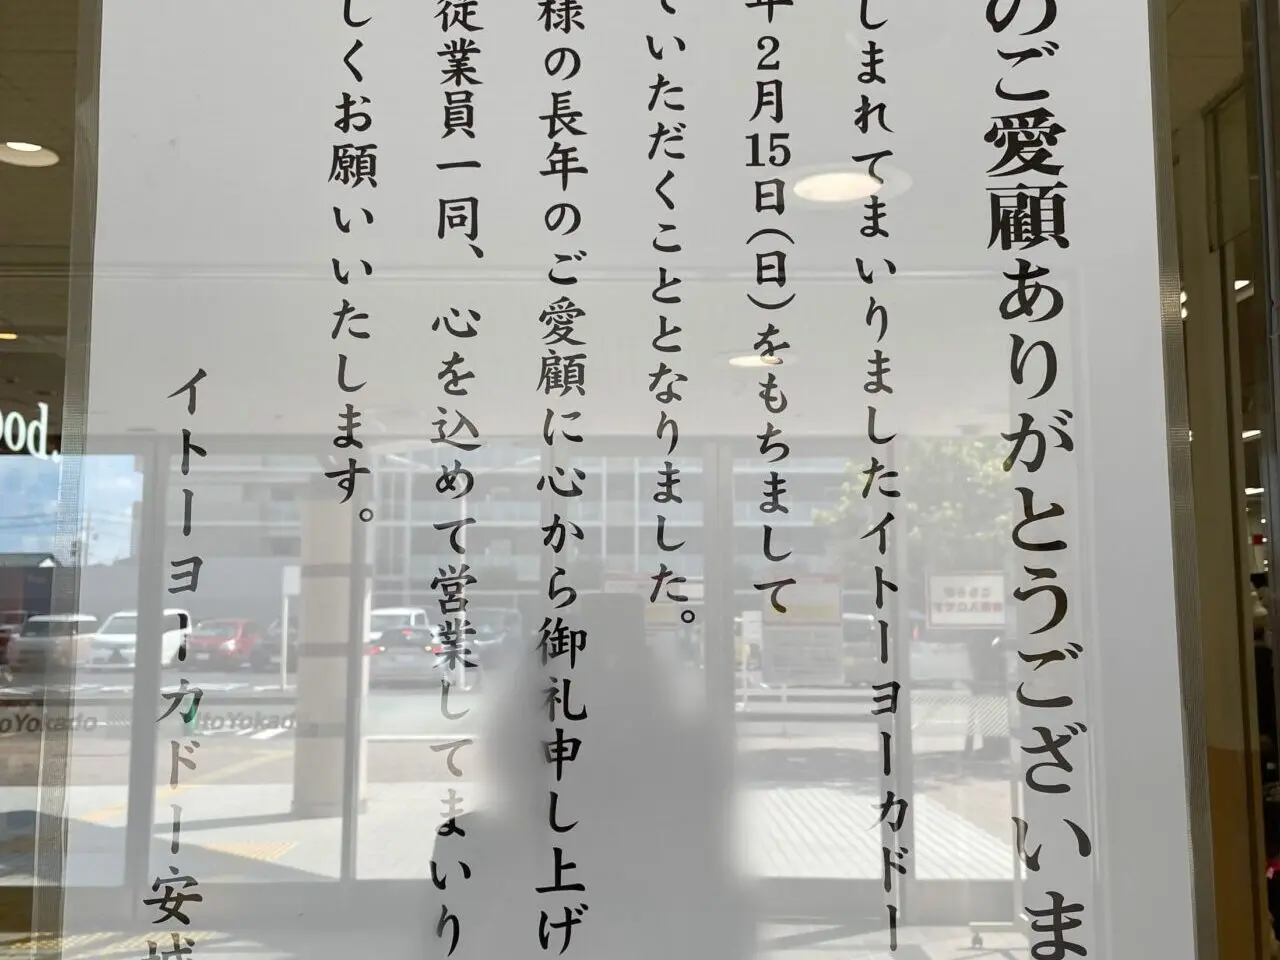 のご愛顧ありがとうございま
しまれてまいりましたイトーヨーカドー
年2月15日(日)をもちまして
ていただくこととなりました。
様の長年のご愛顧に心から御礼申し上げ
従業員一同、心を込めて営業してまいり
しくお願いいたします。
イトーヨーカドー安城